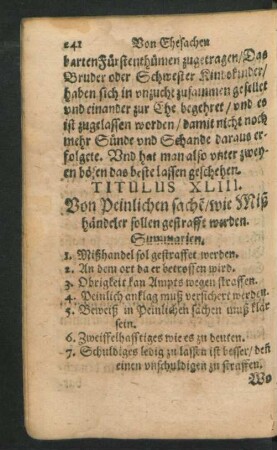 242 Von Ehesachen
barten Fürstenthümen zugetragen / Das
Bruder oder Schwester Kindskinder /
haben sich in vnzucht zusammen gesellet
vnd einander zur Ehe begehret / vnd es
ist zugelassen worden / damit nicht noch
mehr Sünde vnd Schande daraus er-
folgete. Vnd hat man also vnter zwey-
en bösen das beste lassen geschehen.
TITULUS XLIII.
Von Peinlichen sachē / wie Miß
händeler sollen gestrafft werden.
Summarien.
1. Mißhandel sol gestraffet werden.
2. An dem ort da er betroffen wird.
3. Obrigkeit kan Ampts wegen straffen.
4. Peinlich anklag muß versichert werden.
5. Beweiß in Peinlichen sachen muß klar
sein.
6. Zweiffelhafftiges wie es zu deuten.
7. Schuldiges ledig zu lassen ist besser / deñ
einen vnschuldigen zu straffen.
Wo